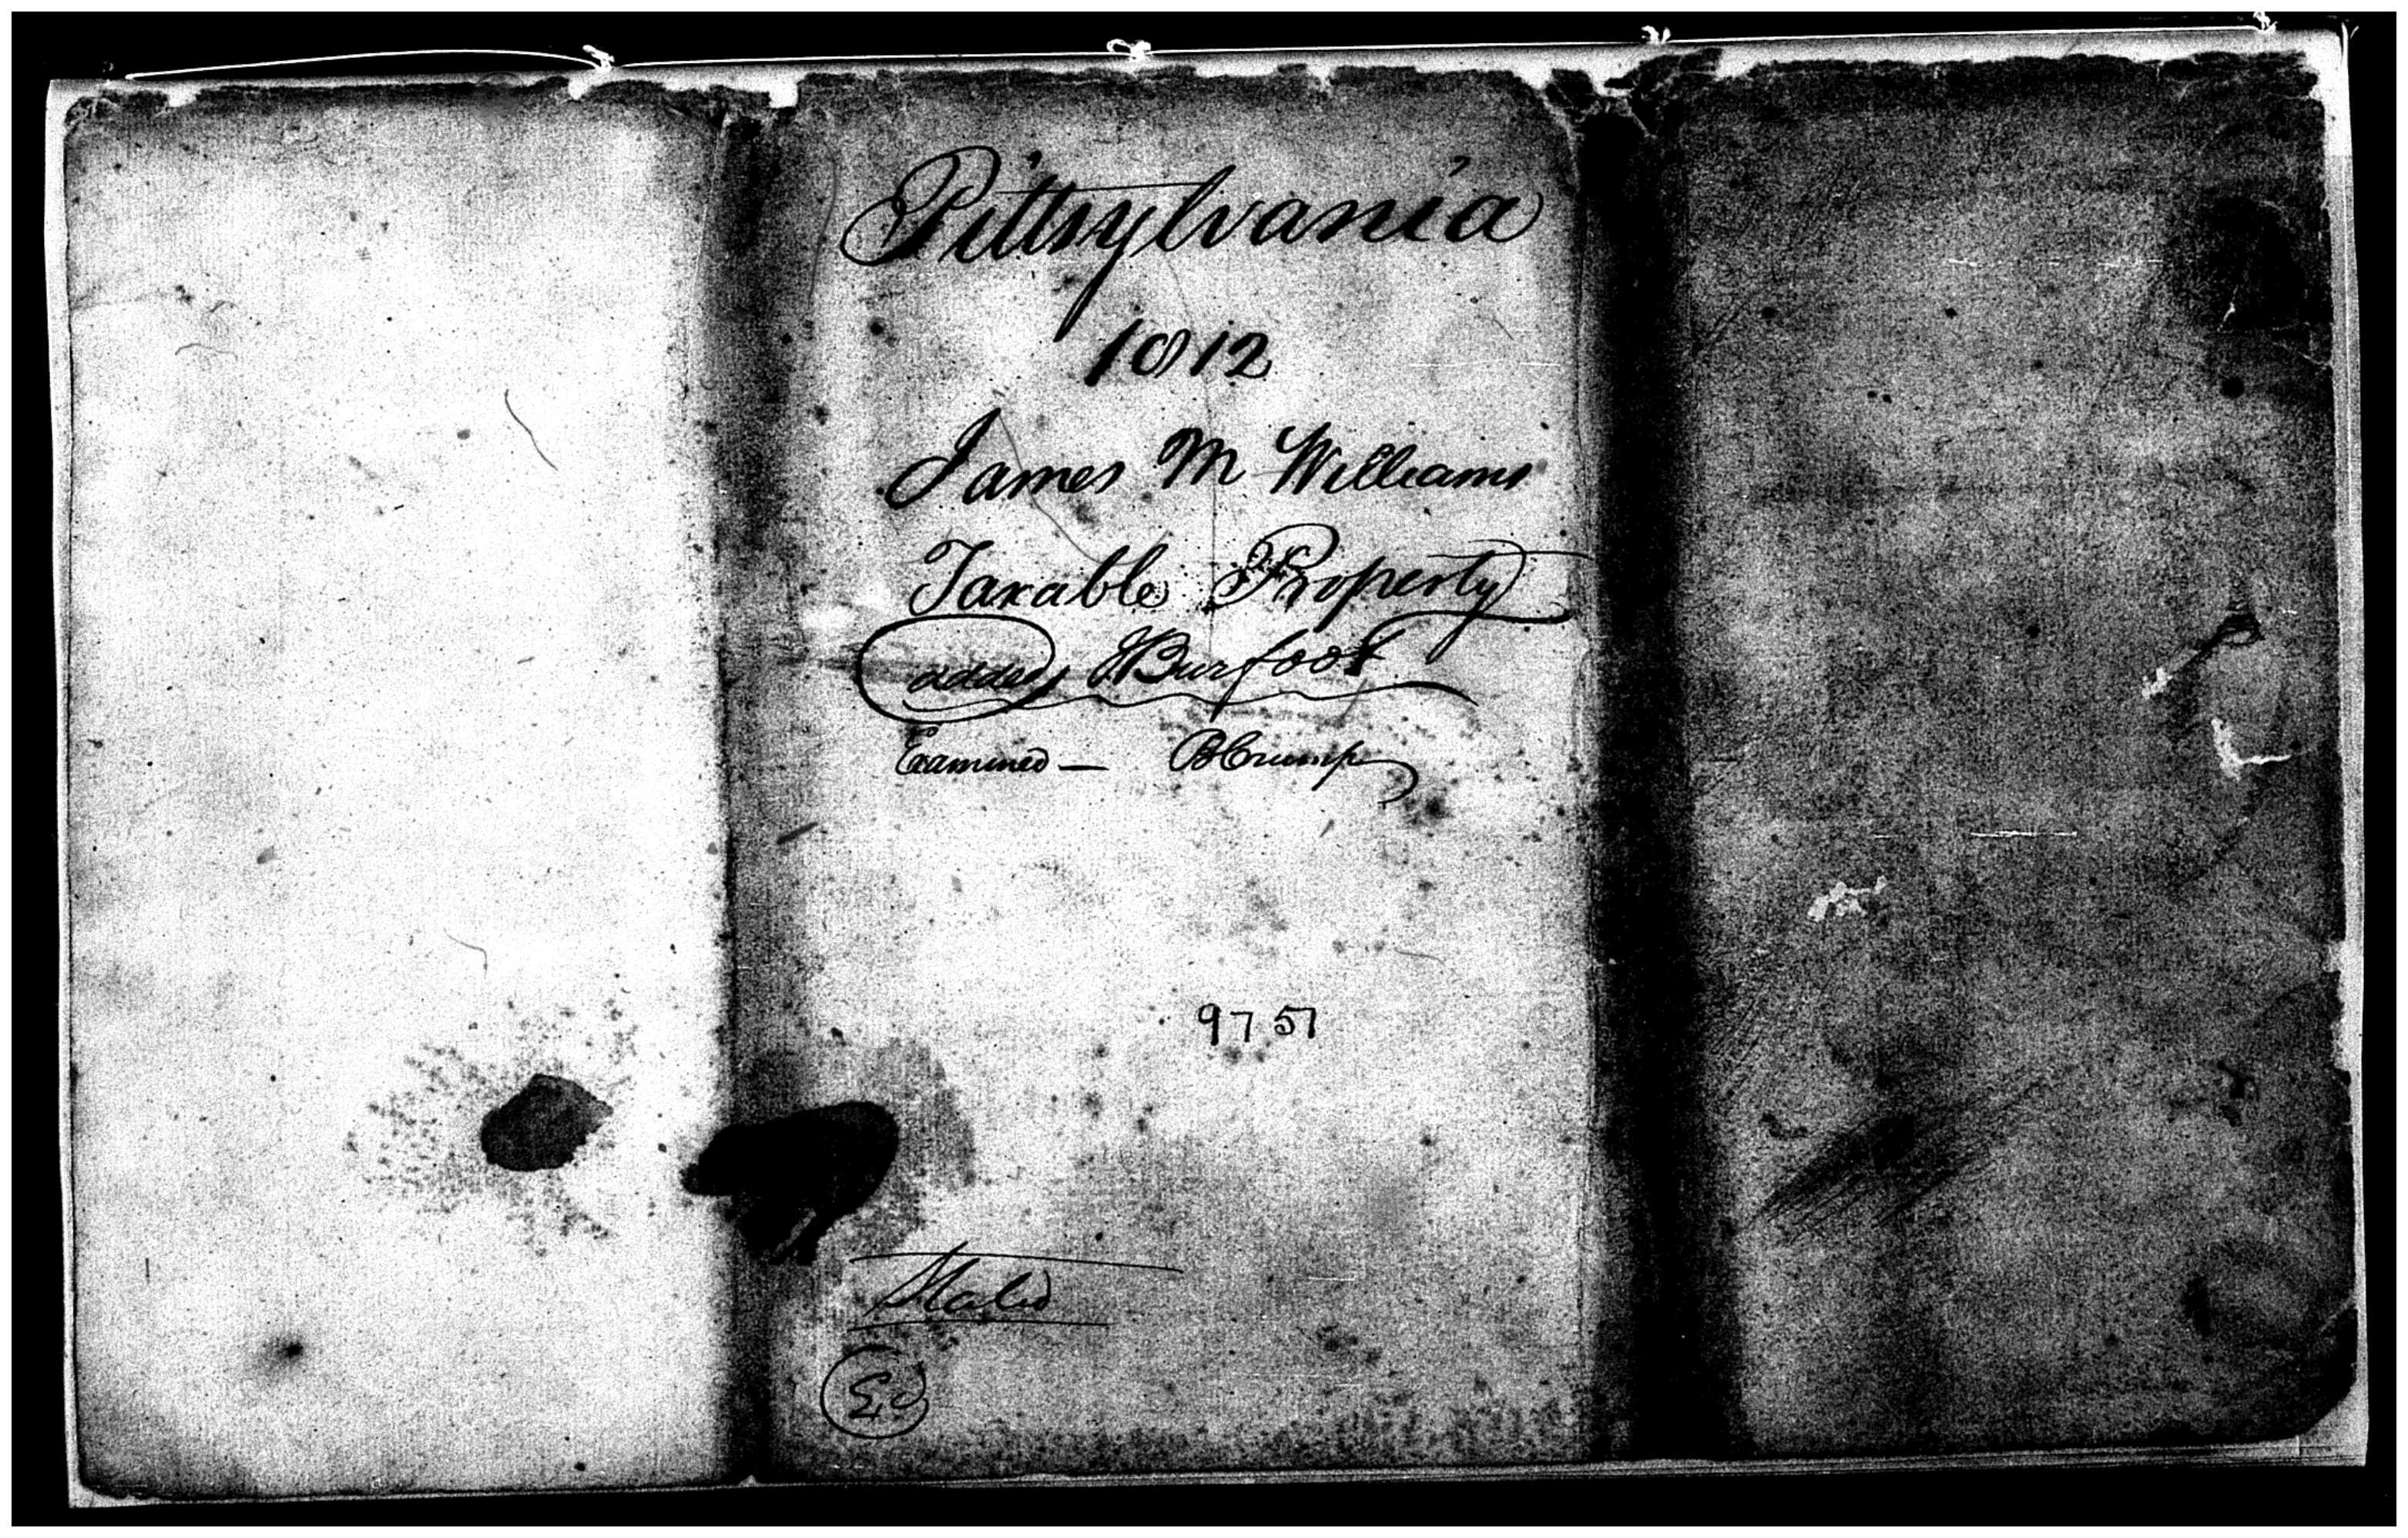 Pittsylvania
1812
James M Williams
Taxable Property
added JBurfoot
Examined — BCrump
9757
Stated